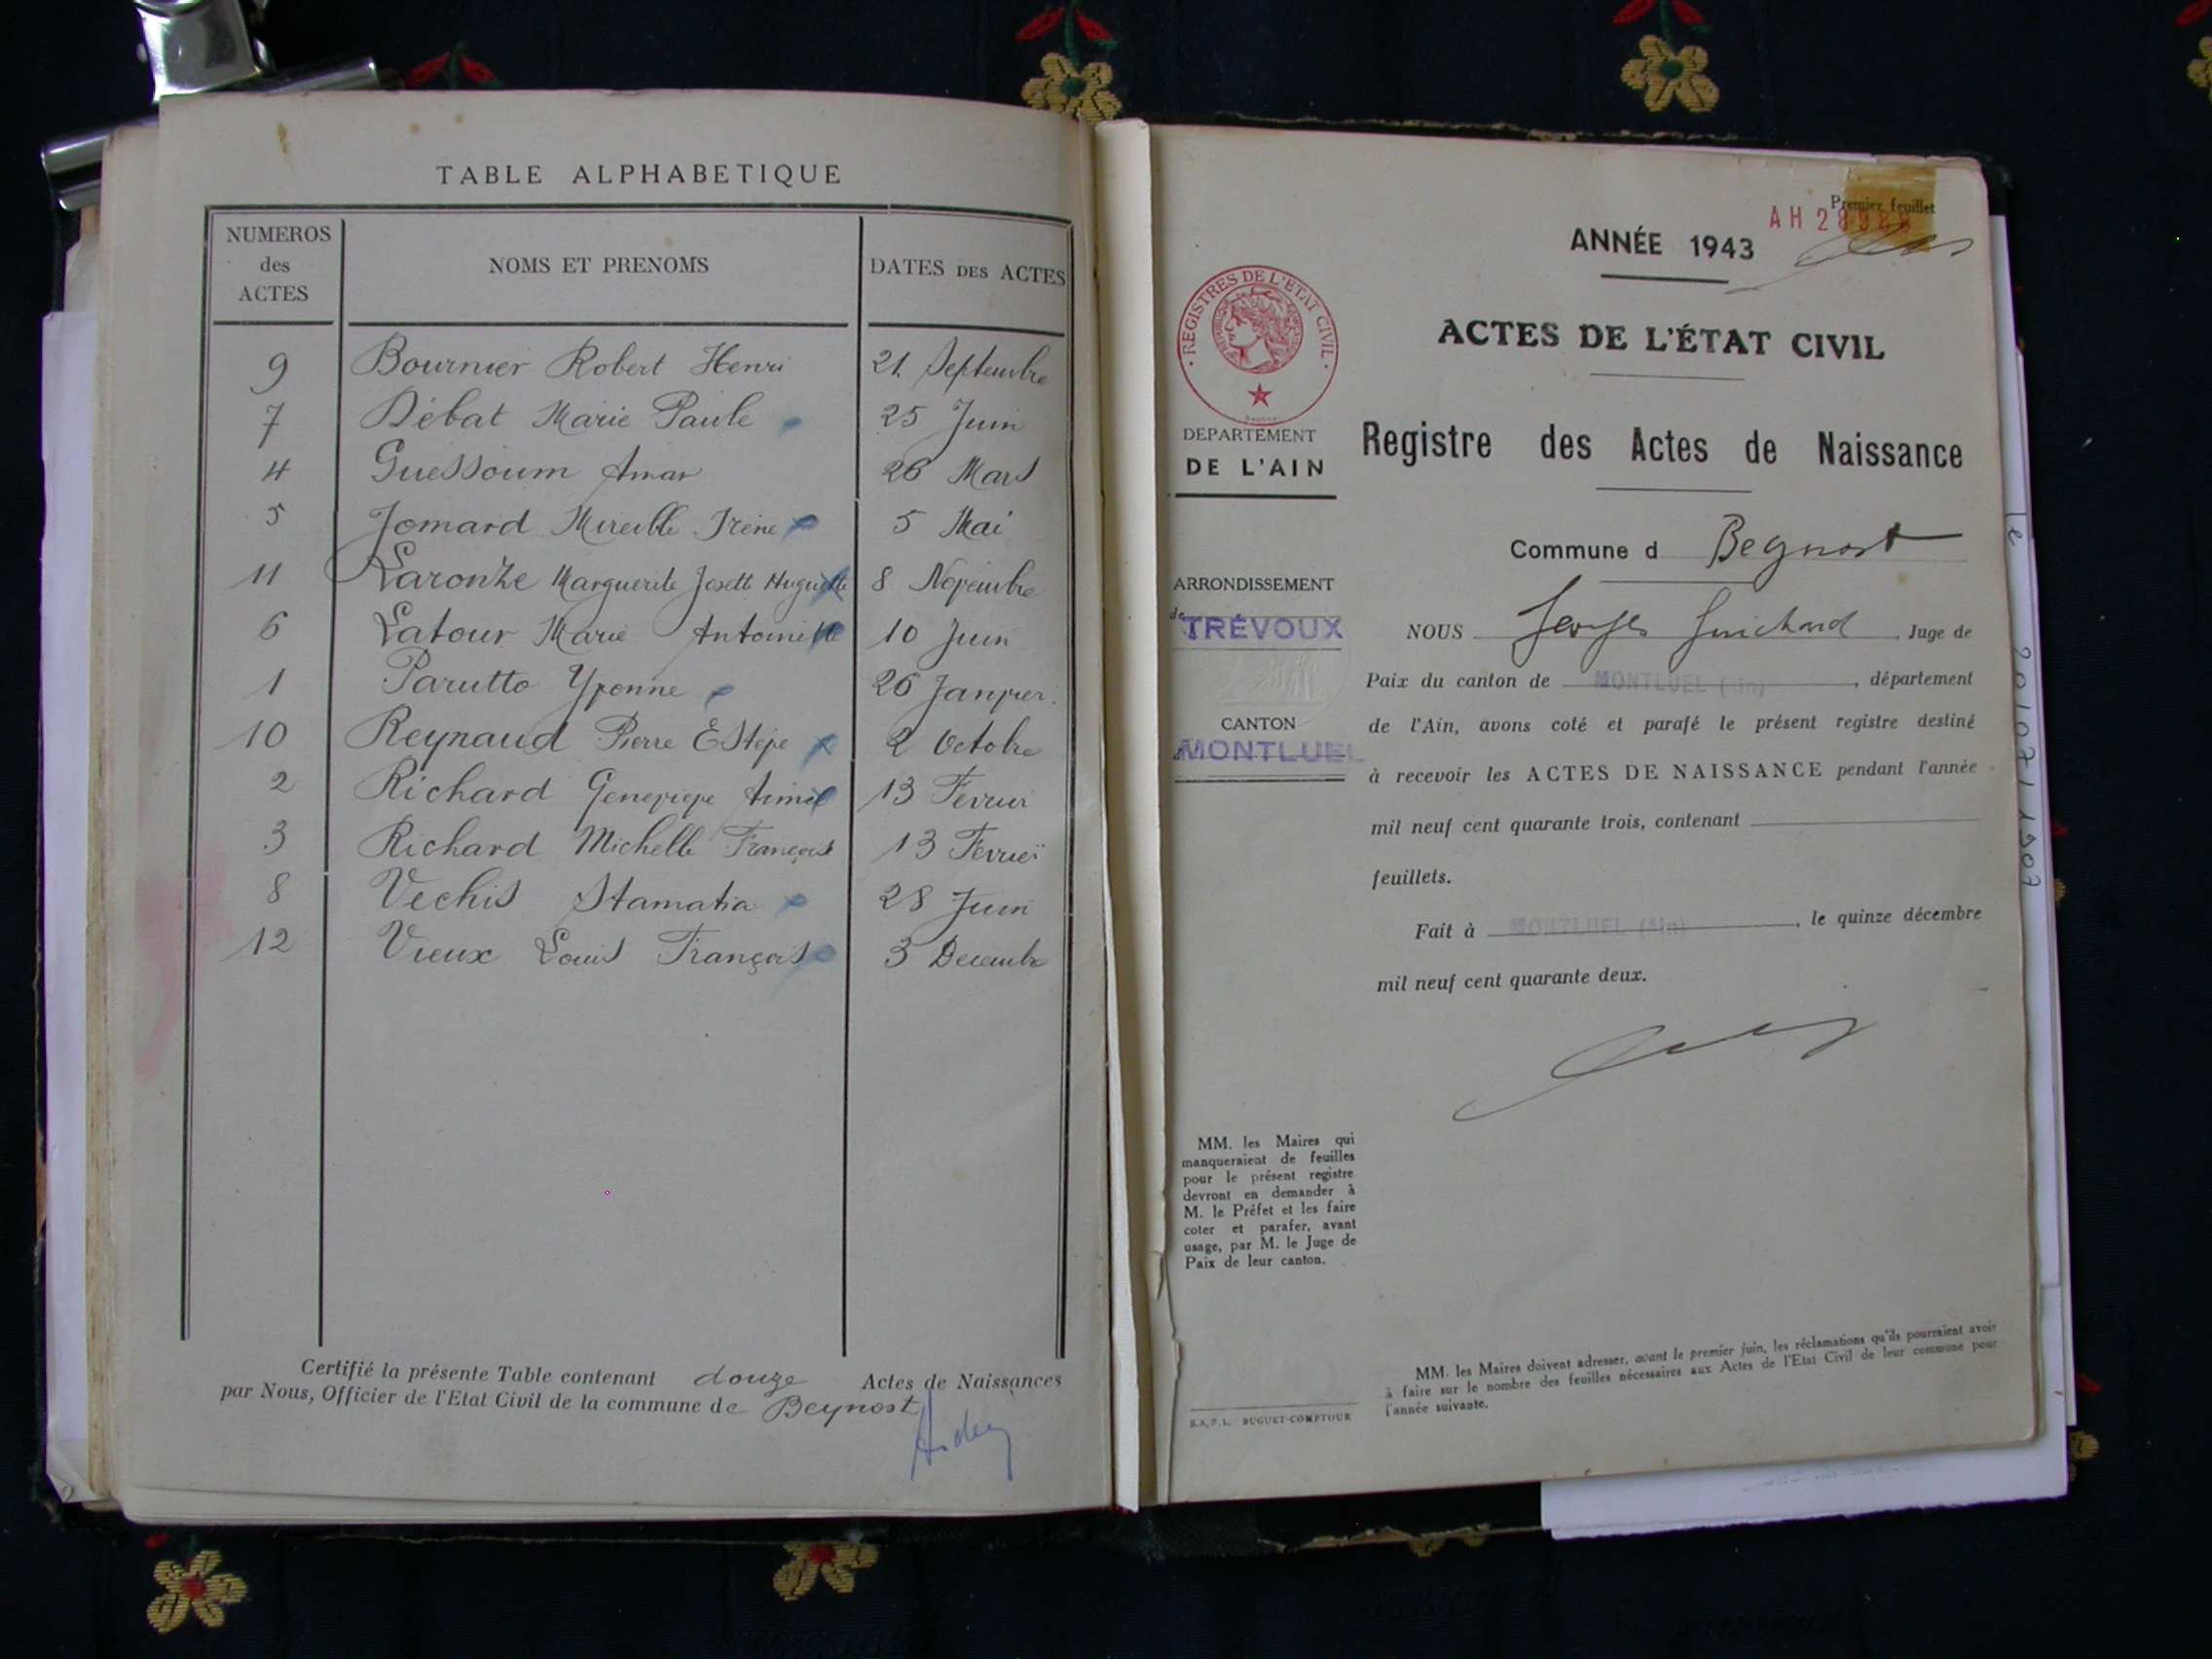 TABLE ALPHABETIQUE
NUMEROS des ACTES NOMS ET PRENOMS DATES DES ACTES
9 Bournier Robert Henri 21 Septembre
7 Débat Marie Paule 25 Juin
4 Guessoum Amar 26 Mars
5 Jomard Mireille Irène 5 Mai
11 Laronze Marguerite Josette Huguette 8 Novembre
6 Latour Marie Antoinette 10 Juin
1 Parutto Yvonne 26 Janvier
10 Reynaud Pierre Estève 2 Octobre
2 Richard Geneviève Aimée 13 Fevrier
3 Richard Michelle Françoise 13 Fevrier
8 Vechis Stamatia 28 Juin
12 Vieux Louis François 3 Decembre
Certifié la présente Table contenant douze Actes de Naissances
par Nous, Officier de l'Etat Civil de la commune de Beynost
Premier feuillet
AH
ANNÉE 1943
REGISTRES DE L'ETAT CIVIL
ACTES DE L'ÉTAT CIVIL
DEPARTEMENT
DE L'AIN
Registre des Actes de Naissance
Commune d Beynost
ARRONDISSEMENT
de TRÉVOUX
CANTON
MONTLUEL
NOUS Georges Guichard Juge de
Paix du canton de MONTLUEL (Ain), département
de l'Ain, avons coté et parafé le présent registre destiné
à recevoir les ACTES DE NAISSANCE pendant l'année
mil neuf cent quarante trois, contenant
feuillets.
Fait à MONTLUEL (Ain), le quinze décembre
mil neuf cent quarante deux.
MM. les Maires qui
manqueraient de feuilles
pour le présent registre
devront en demander à
M. le Préfet et les faire
coter et parafer, avant
usage, par M. le Juge de
Paix de leur canton.
MM. les Maires doivent adresser, avant le premier juin, les réclamations qu'ils pourraient avoir
à faire sur le nombre des feuilles nécessaires aux Actes de l'Etat Civil de leur commune pour
l'année suivante.
BUGUET-COMPTOUR